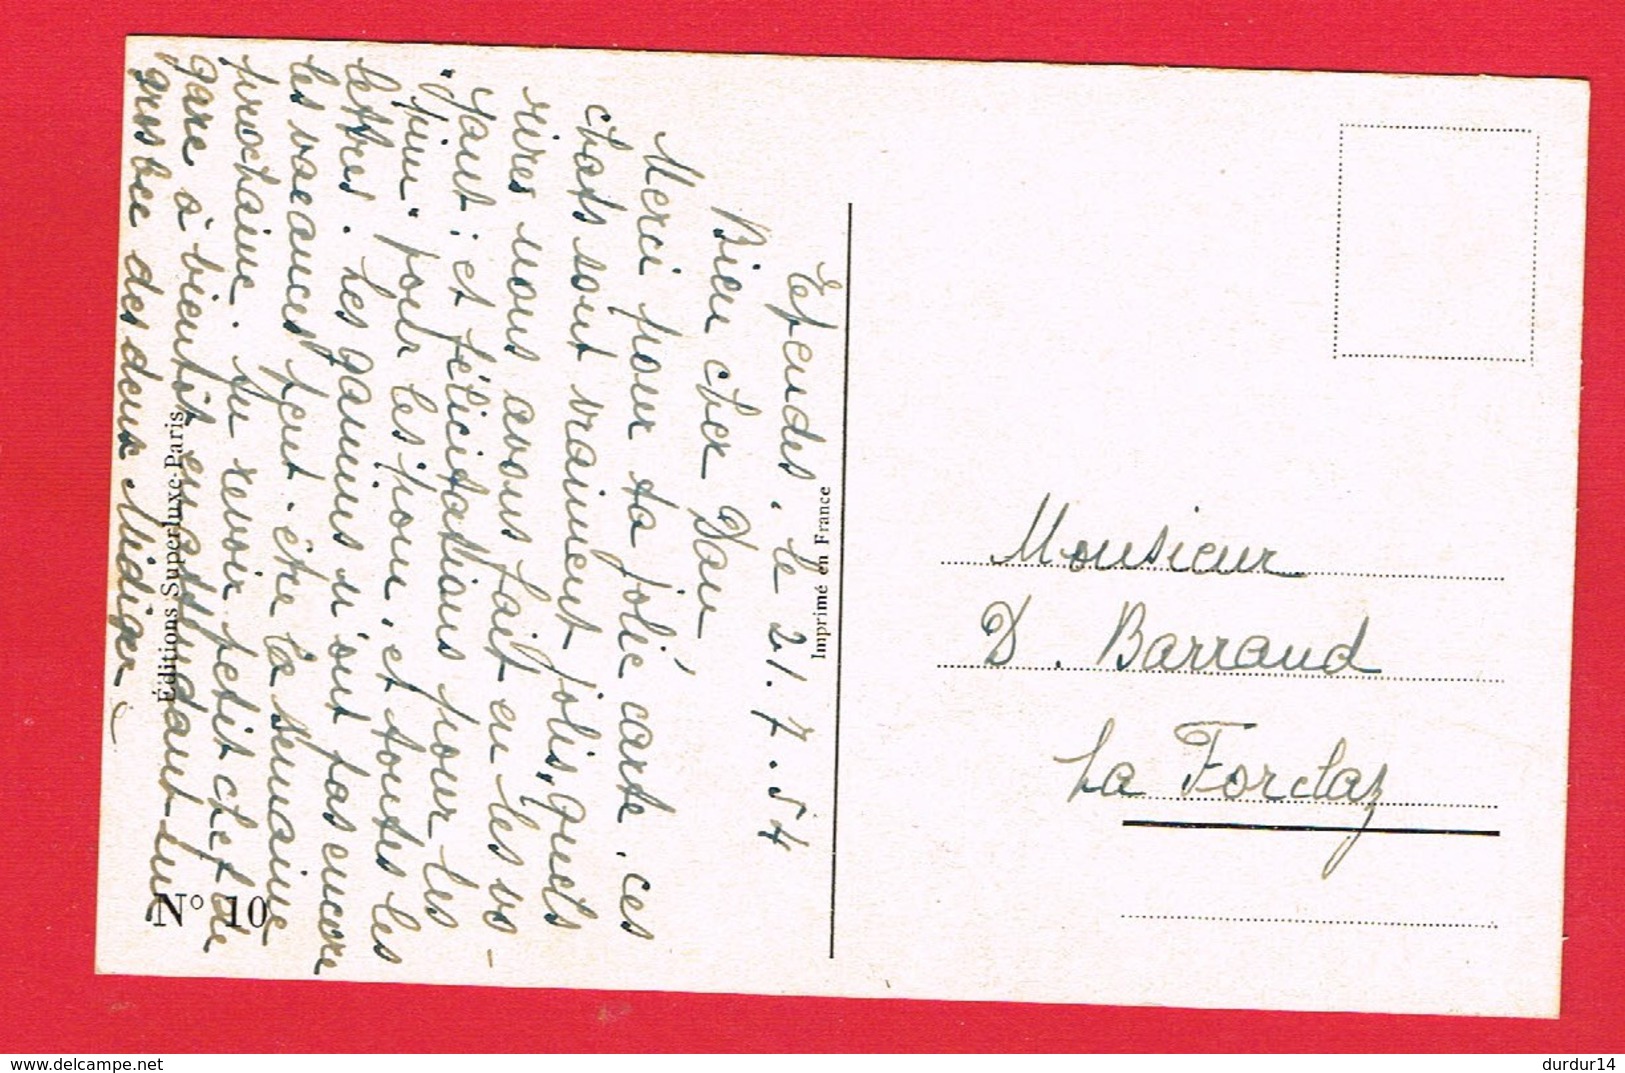 Ependes, le 21.7.54
Bien cher Dan
Merci pour ta jolie carte, ces
chats sont vraiment jolis, quels
rires nous avons fait en les vo-
yant; et félicitations pour les
"pim" pour les "pom", et toutes les
lettres. Les gamins n'ont pas encore
les vacances peut-être la semaine
prochaine. Au revoir petit chef de
gare à bientôt en attendant une
grosse bec des deux
Imprimé en France
Éditions Superluxe-Paris
N° 10
Monsieur
D. Barraud
La Forclaz
durdur14